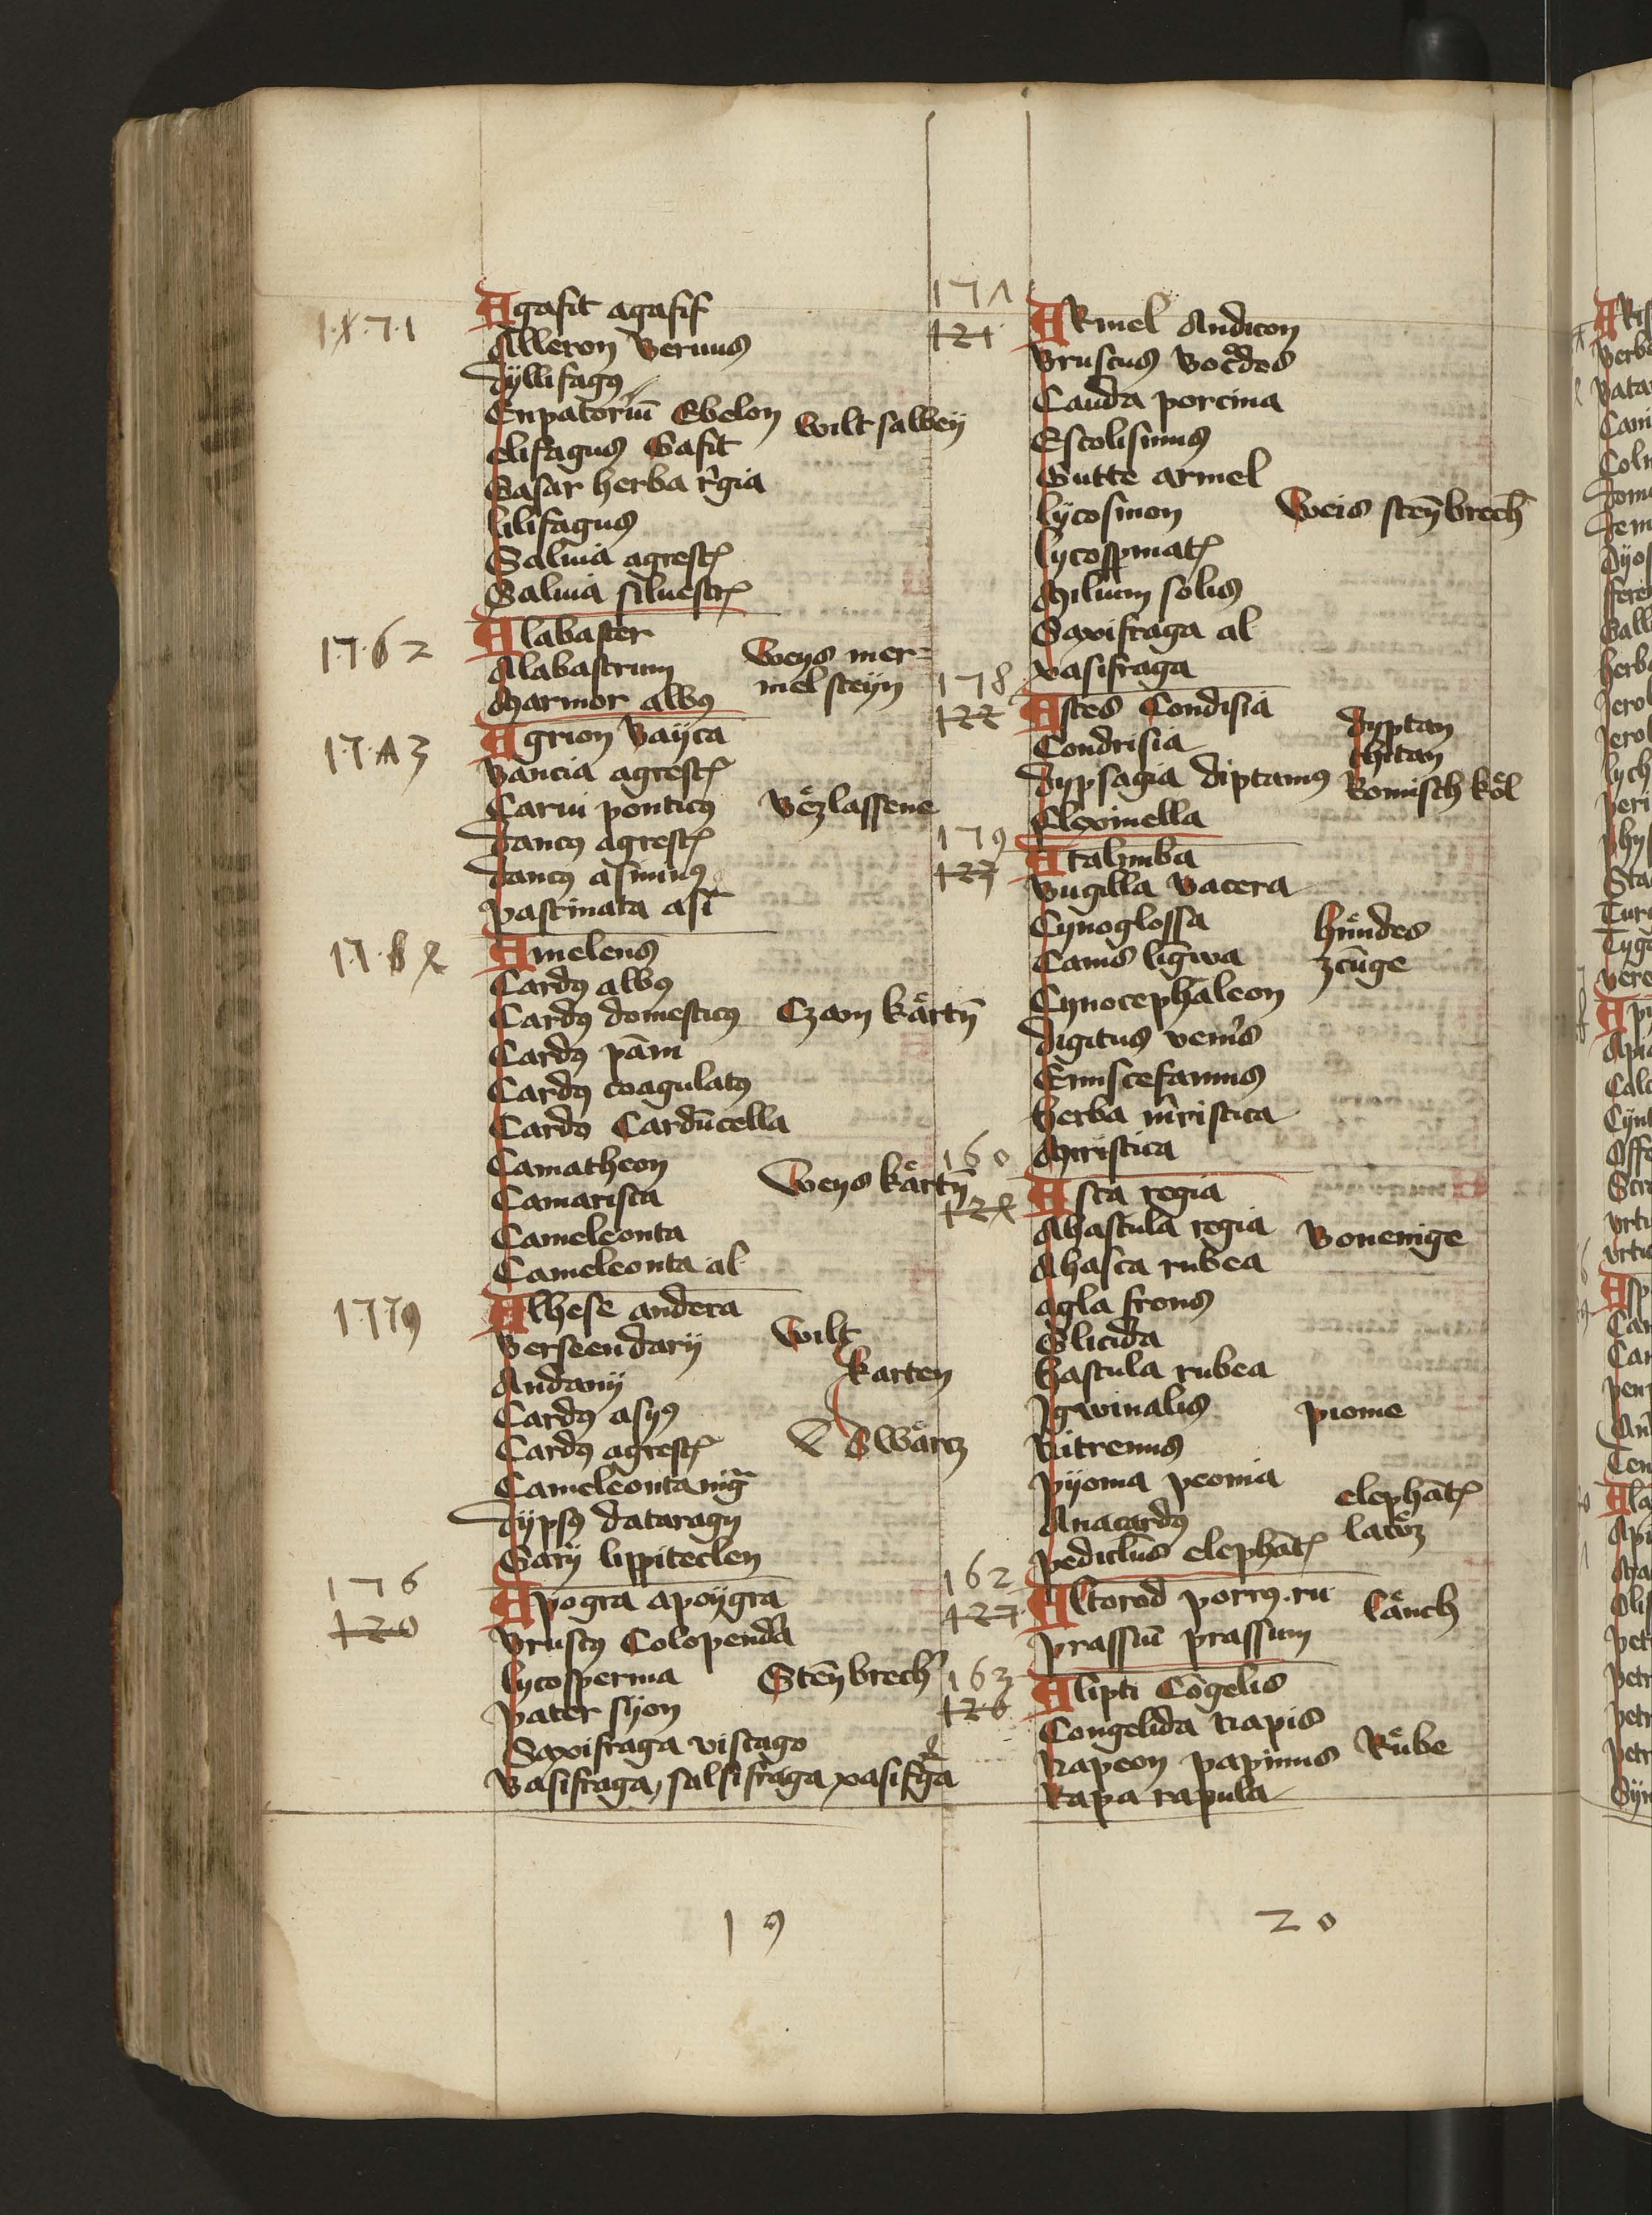 Agasit agasif
Alleron Vermus
dyllifagus
Eupatoriū Ebelon wilt salbey
elifagus Gasit
Gasar herba rigia
lilifagus
Salvia agrestꝭ
Salvia silvestrꝭ
1762 Alabaster
Alabastrum Weys mer-
Marmor albꝰ mel steyn
Agrion Bayca
bancia agrestꝭ
Carui ponticꝰ
daucꝰ agrestꝭ
daucꝰ asininꝰ
pastinata asī
Ameleus
Cardꝰ albꝰ
Cardꝰ domesticꝰ Czam kartn̄
Cardꝰ pām
Cardꝰ coagulatꝰ
Cardꝰ Cardūcella
Camatheon
Camarista Weys kartn̄
Cameleonta
Cameleonta al
1779 Alhese andera
Berseendarij Wilt
Andanij karten
Cardꝰ asyꝰ
Cardꝰ agrestꝭ Swarcz
Cameleonta nigͣ
dypsꝰ dataragy
Gary lippiteclen
176
120
Apogra apoygra
Bruscꝰ Colopendͣ
lycosperma Stēybrech
pater syon
Saxifraga vistago
Vasifraga, salsifraga xasifgͣa
171
121
Armel Andicon
Bruscus
Cauda porcina
Escolisimus
Gutte armel
lycosmon Weis stēybrech
lycosꝑmatꝭ
Milium solis
Saxifraga al
xasifraga
178
122
Astes Condisia dyptan
Condrisia
dypsagia diptamꝰ Romisch köl
Flexinella
179
123
Atalimba
Bugilla Vacera
Cynoglossa hundes
Canis ligwa zcūge
Cynocephaleon
digitus venis
Emiscefanius
herba miristica
Miristica
160
Asta regia
Ahastula regia Bonenige
Ahasta rubea
agla frons
Glicida
hastula rubea
Igwinalis pionie
Nitrenus
pyonia peonia
Anacardꝰ elephātꝭ
pediclus elephātꝭ
162
127
Altorod porrꝰ ru lauch
prassiū prassium
163
126
Alipti Cōgelis
Congelida Napis
Napeon papinus Rube
Rapa rapula
19 20